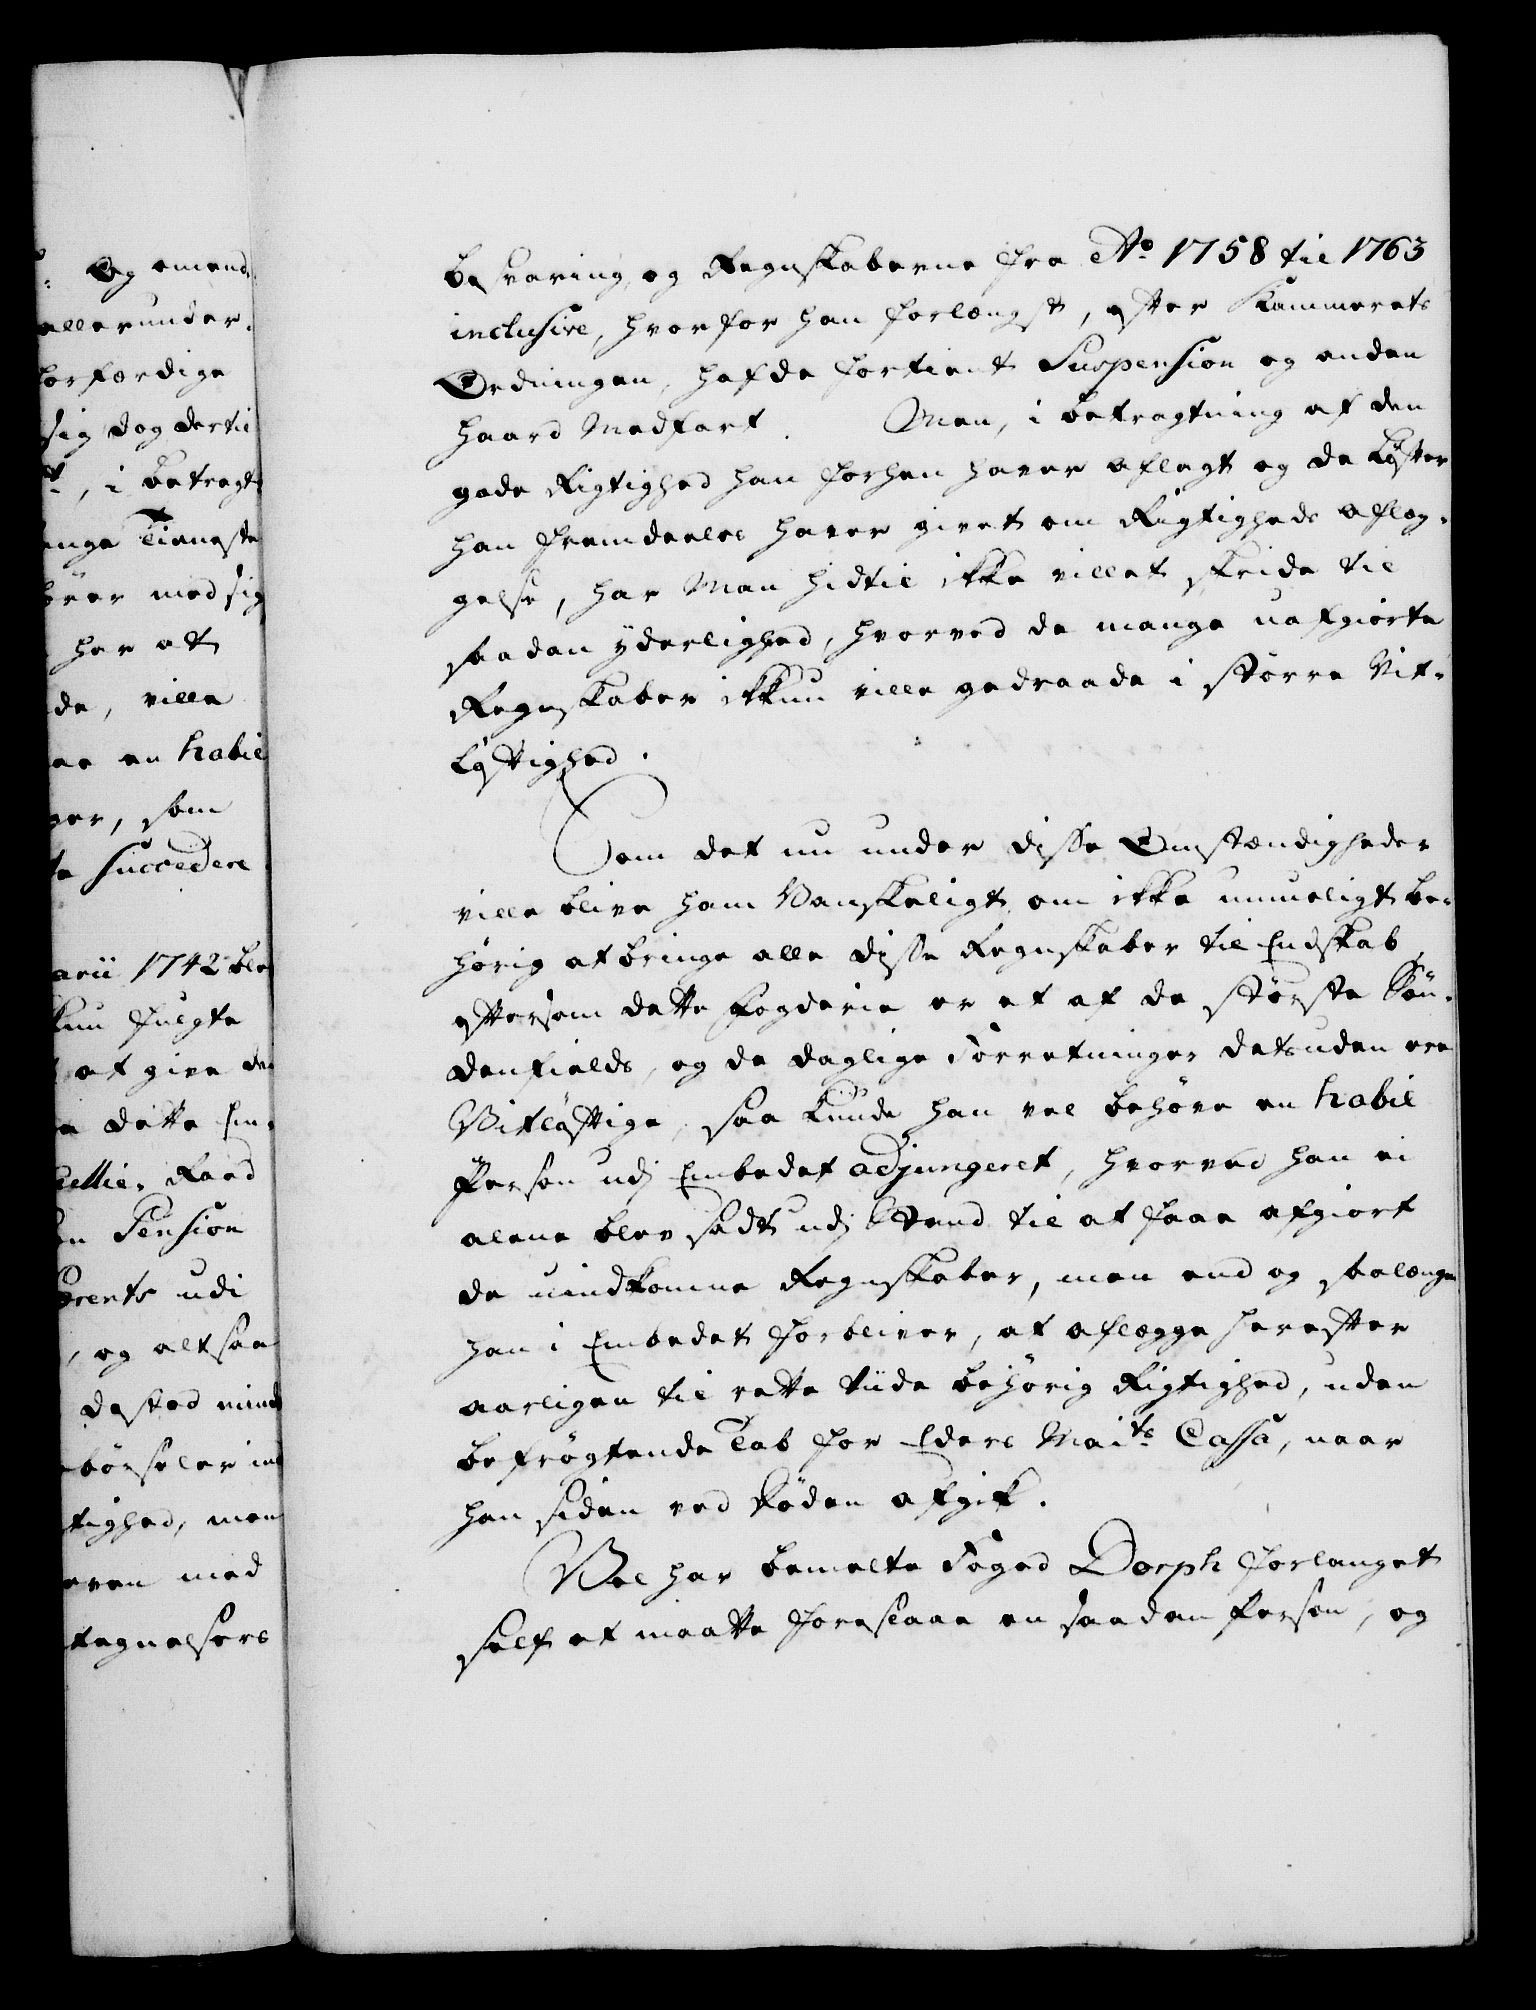 Og omend¬
allerunder¬
borfærdige
sig dog dertil
, i betragt
nge Tieneste
börer med sig
her at
de, ville
en habil
ger, som
te Succedere
arii 1742 ble
kun fulgte
at give de
dette Em¬
Cellie-Raad
en Pension
udi
, og altsaa
dested mind
tighed, men
even med
tegnelsers
besvaring, og Regnskaberne fra Ao 1758 til 1763
inclusive, hvorfor han forlængst, efter Kammerets
Ordningen, hafde fortient Suspension og anden
haard Medfart. Men, i betragtning af den
gode Rigtighed han forhen haver aflagt og de Löfter
han fremdeeles haver givet om Rigtigheds aflæg¬
gelse, har Man hidtil ikke villet skride til
saadan yderlighed, hvorved de mange uafgiorte
Regnskaber ikkun ville geraade i större Vit¬
löftighed.
Som det nu under disse Omstændigheder
ville blive ham Vanskeligt, om ikke umueligt be¬
hörig at bringe alle disse Regnskaber til Endskab,
eftersom dette Fogderie er et af de störste Sön¬
denfields, og de daglige Forretninger desuden ere
Vitlöftige, saa kunde han vel behöve en habil
Person udj Embedet adjungeret, hvorved han ei
alene blev sadt udj Stand til at faae afgiort
de uindkomne Regnskaber, men end og saalænge
han i Embedet forbliver, at aflægge herefter
aarligen til rette tiide behörig Rigtighed, uden
befrögtende Tab for Eders Maits Cassa, naar
han siden ved Döden afgik.
Vel har bemelte Foged Dorph forlanget
self at maatte foreslaae en saadan Person, og